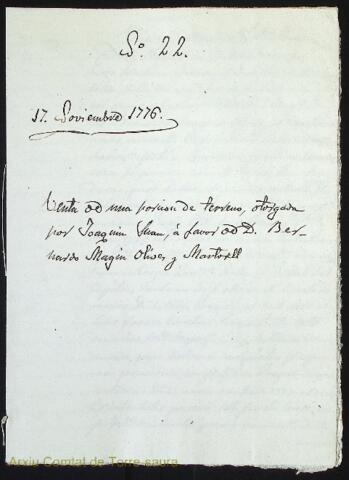 No. 22.
17. Noviembre 1776.
Venta de una porcion de terreno, otorgada
por Joaquin Juan, á favor de D. Ber-
nardo Magin Oliver y Martorell
Arxiu Comtat de Torre-saura